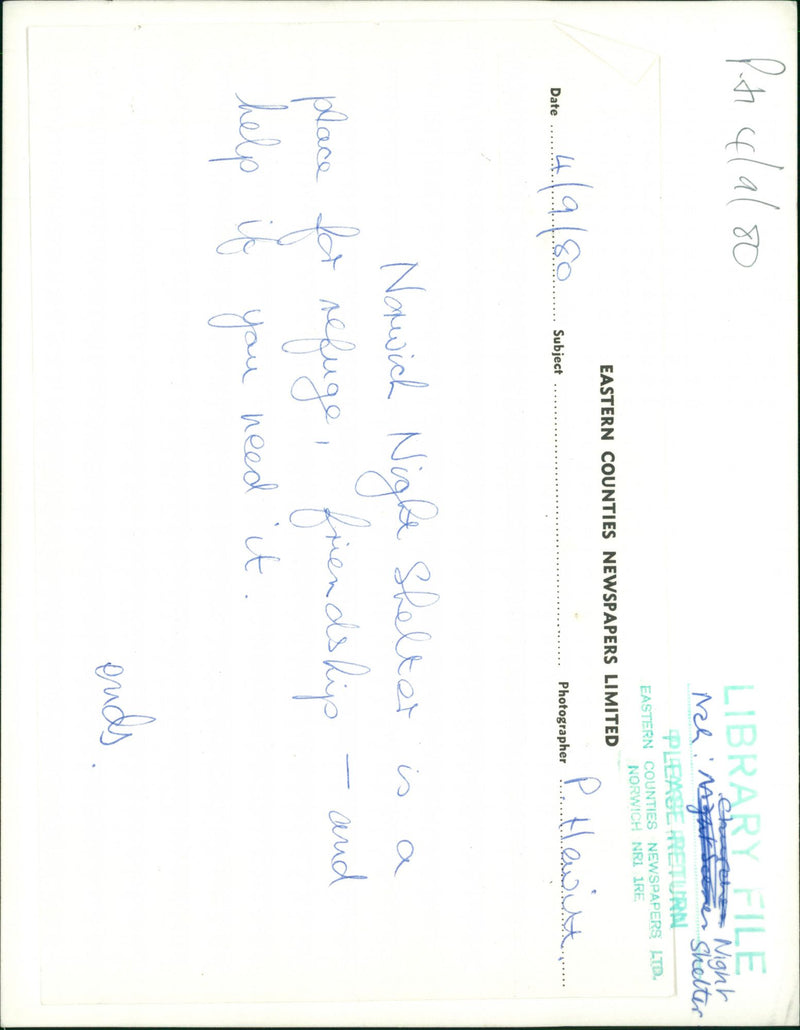 P.H 4/9/80
LIBRARY FILE
Nch: Churches Night
Night Scenes Shelter
PLEASE RETURN
EASTERN COUNTIES NEWSPAPERS LTD.
NORWICH NR1 1RE
EASTERN COUNTIES NEWSPAPERS LIMITED
Date 4/9/80 Subject Photographer P Hewitt
Norwich Night Shelter is a
place for refuge, friendship — and
help if you need it.
ends.